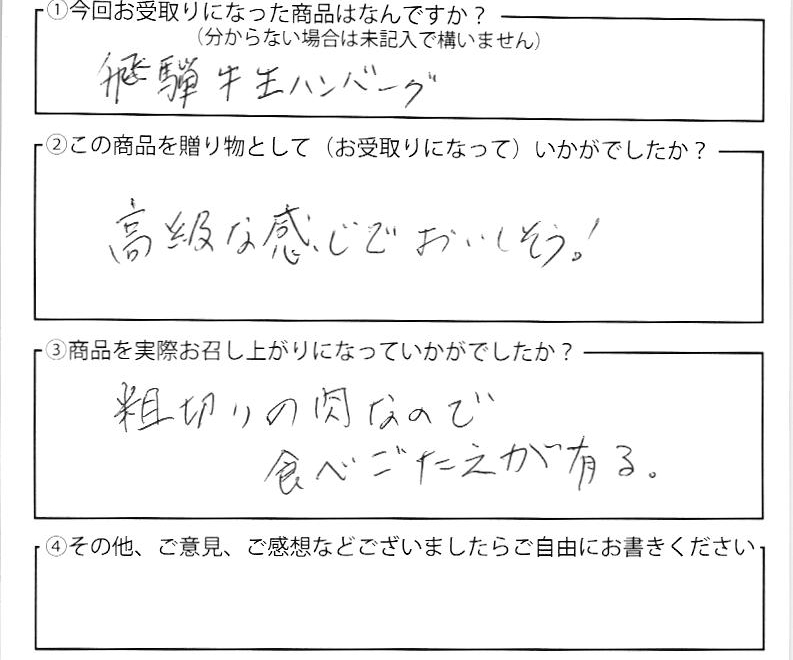 ①今回お受取りになった商品はなんですか？
（分からない場合は未記入で構いません）
飛騨牛生ハンバーグ
②この商品を贈り物として（お受取りになって）いかがでしたか？
高級な感じでおいしそう。！
③商品を実際お召し上がりになっていかがでしたか？
粗切りの肉なので
食べごたえが有る。
④その他、ご意見、ご感想などございましたらご自由にお書きください